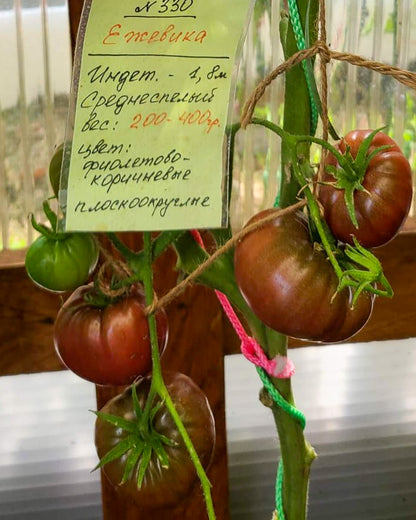 №330
Ежевика
Индет. - 1,8м
Среднеспелый
вес: 200-400гр.
цвет:
фиолетово-
коричневые
плоскоокруглые